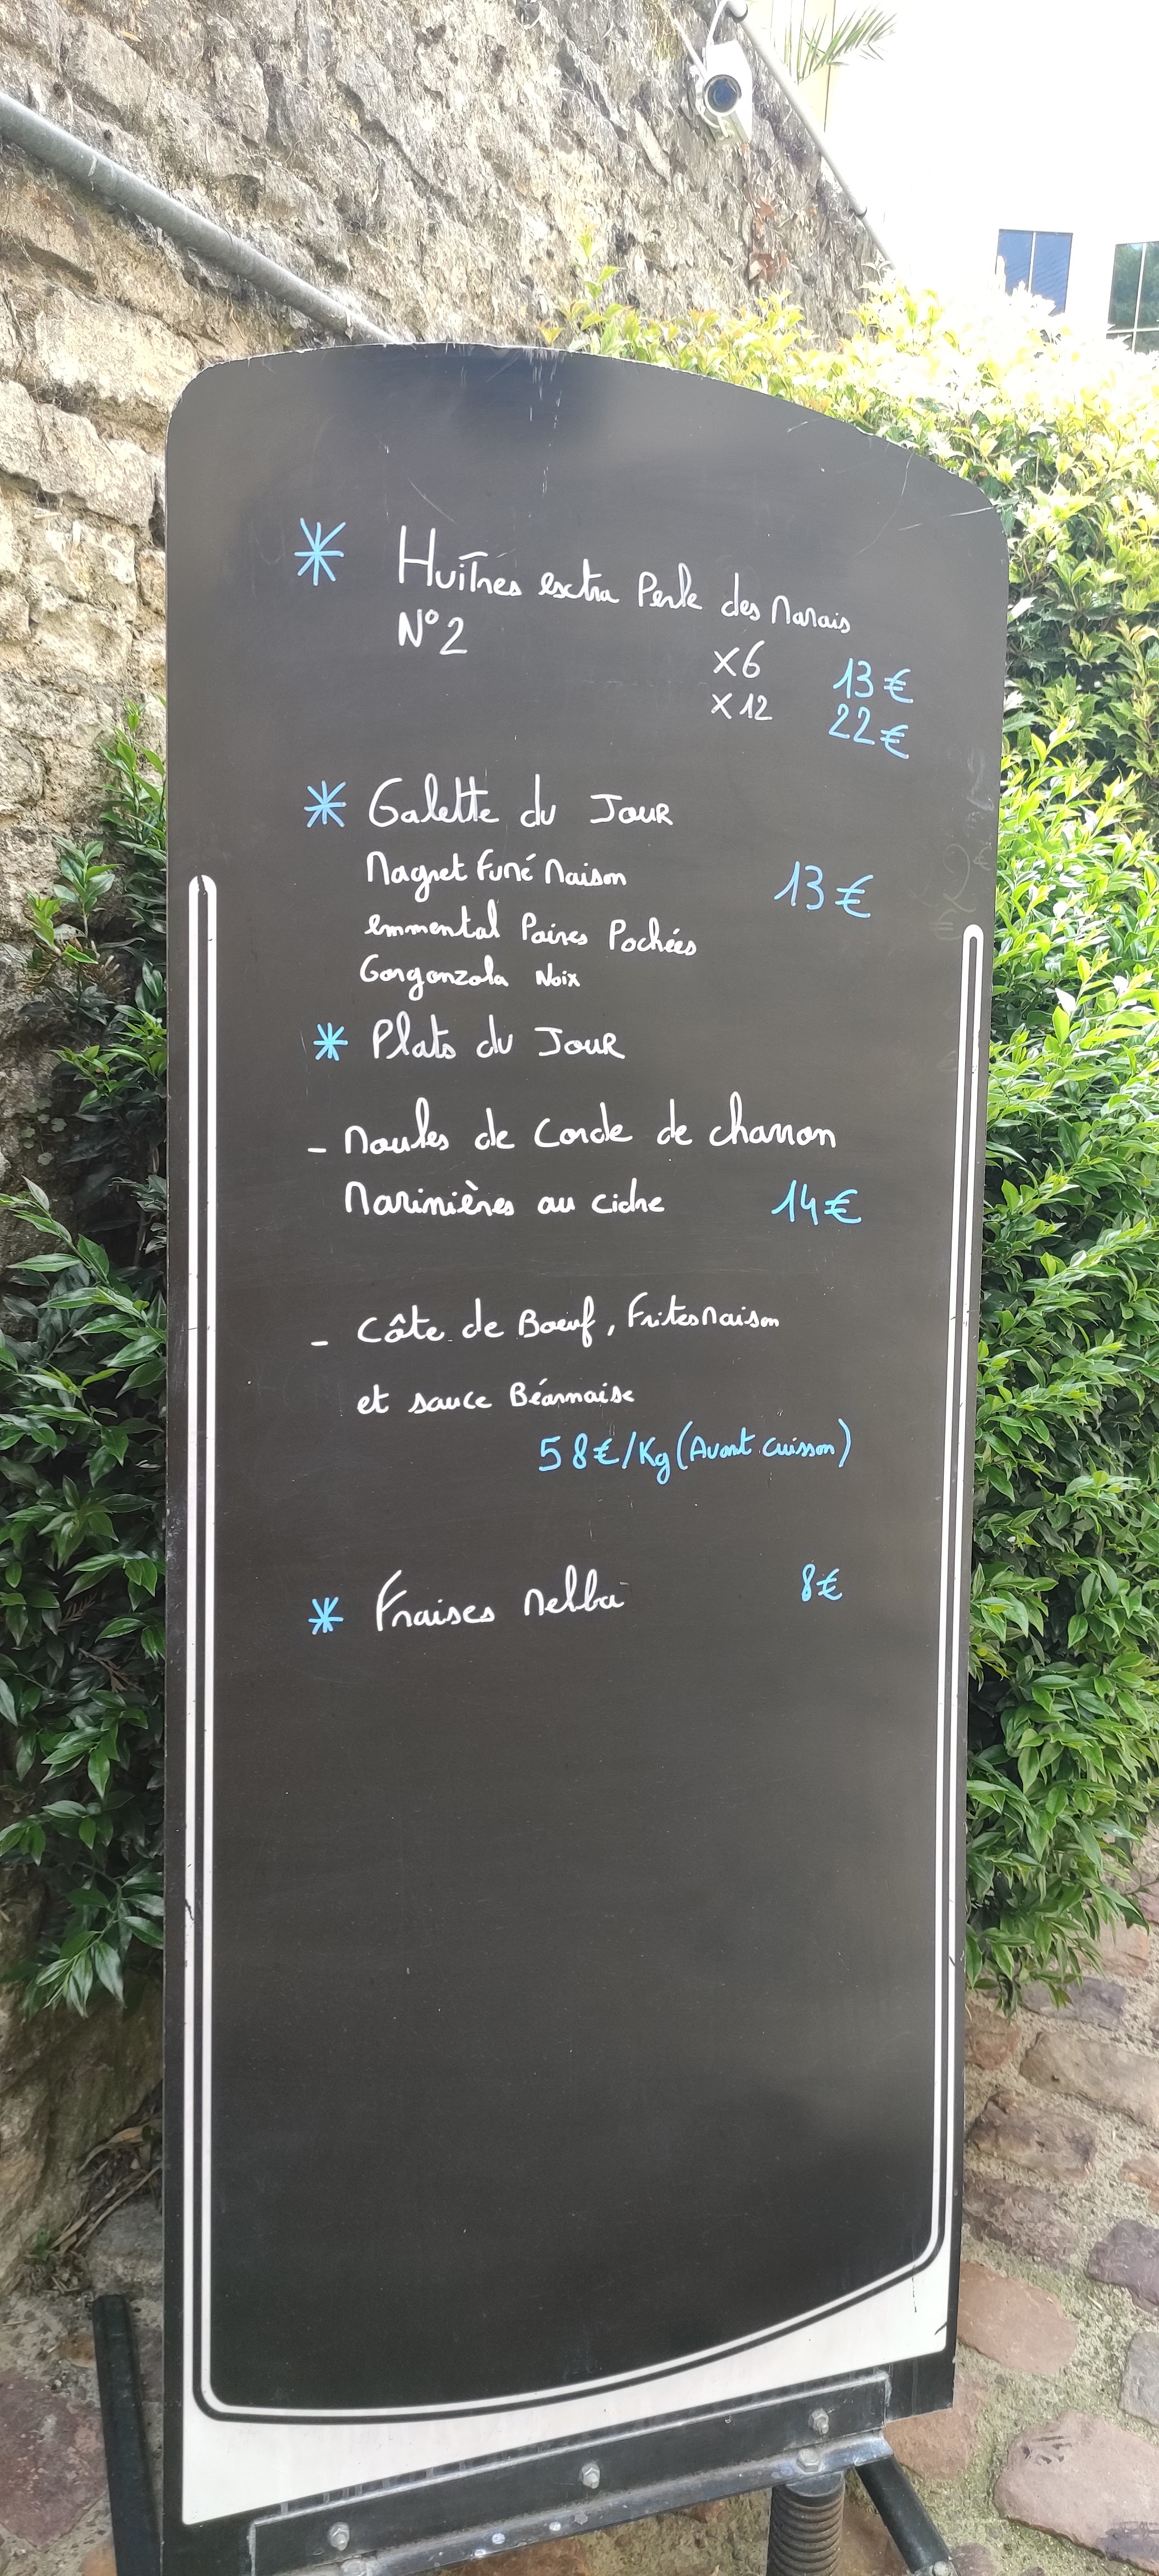 Huîtres extra Perle des Marais
N°2
x6 13€
x12 22€
Galette du Jour
Magret Fumé Maison
13€
emmental Poires Pochées
Gorgonzola Noix
Plats du Jour
- Moules de Corde de charron
Marinières au cidre 14€
- Côte de Boeuf, Frites Maison
et sauce Béarnaise
58€/Kg (Avant cuisson)
Fraises Melba 8€